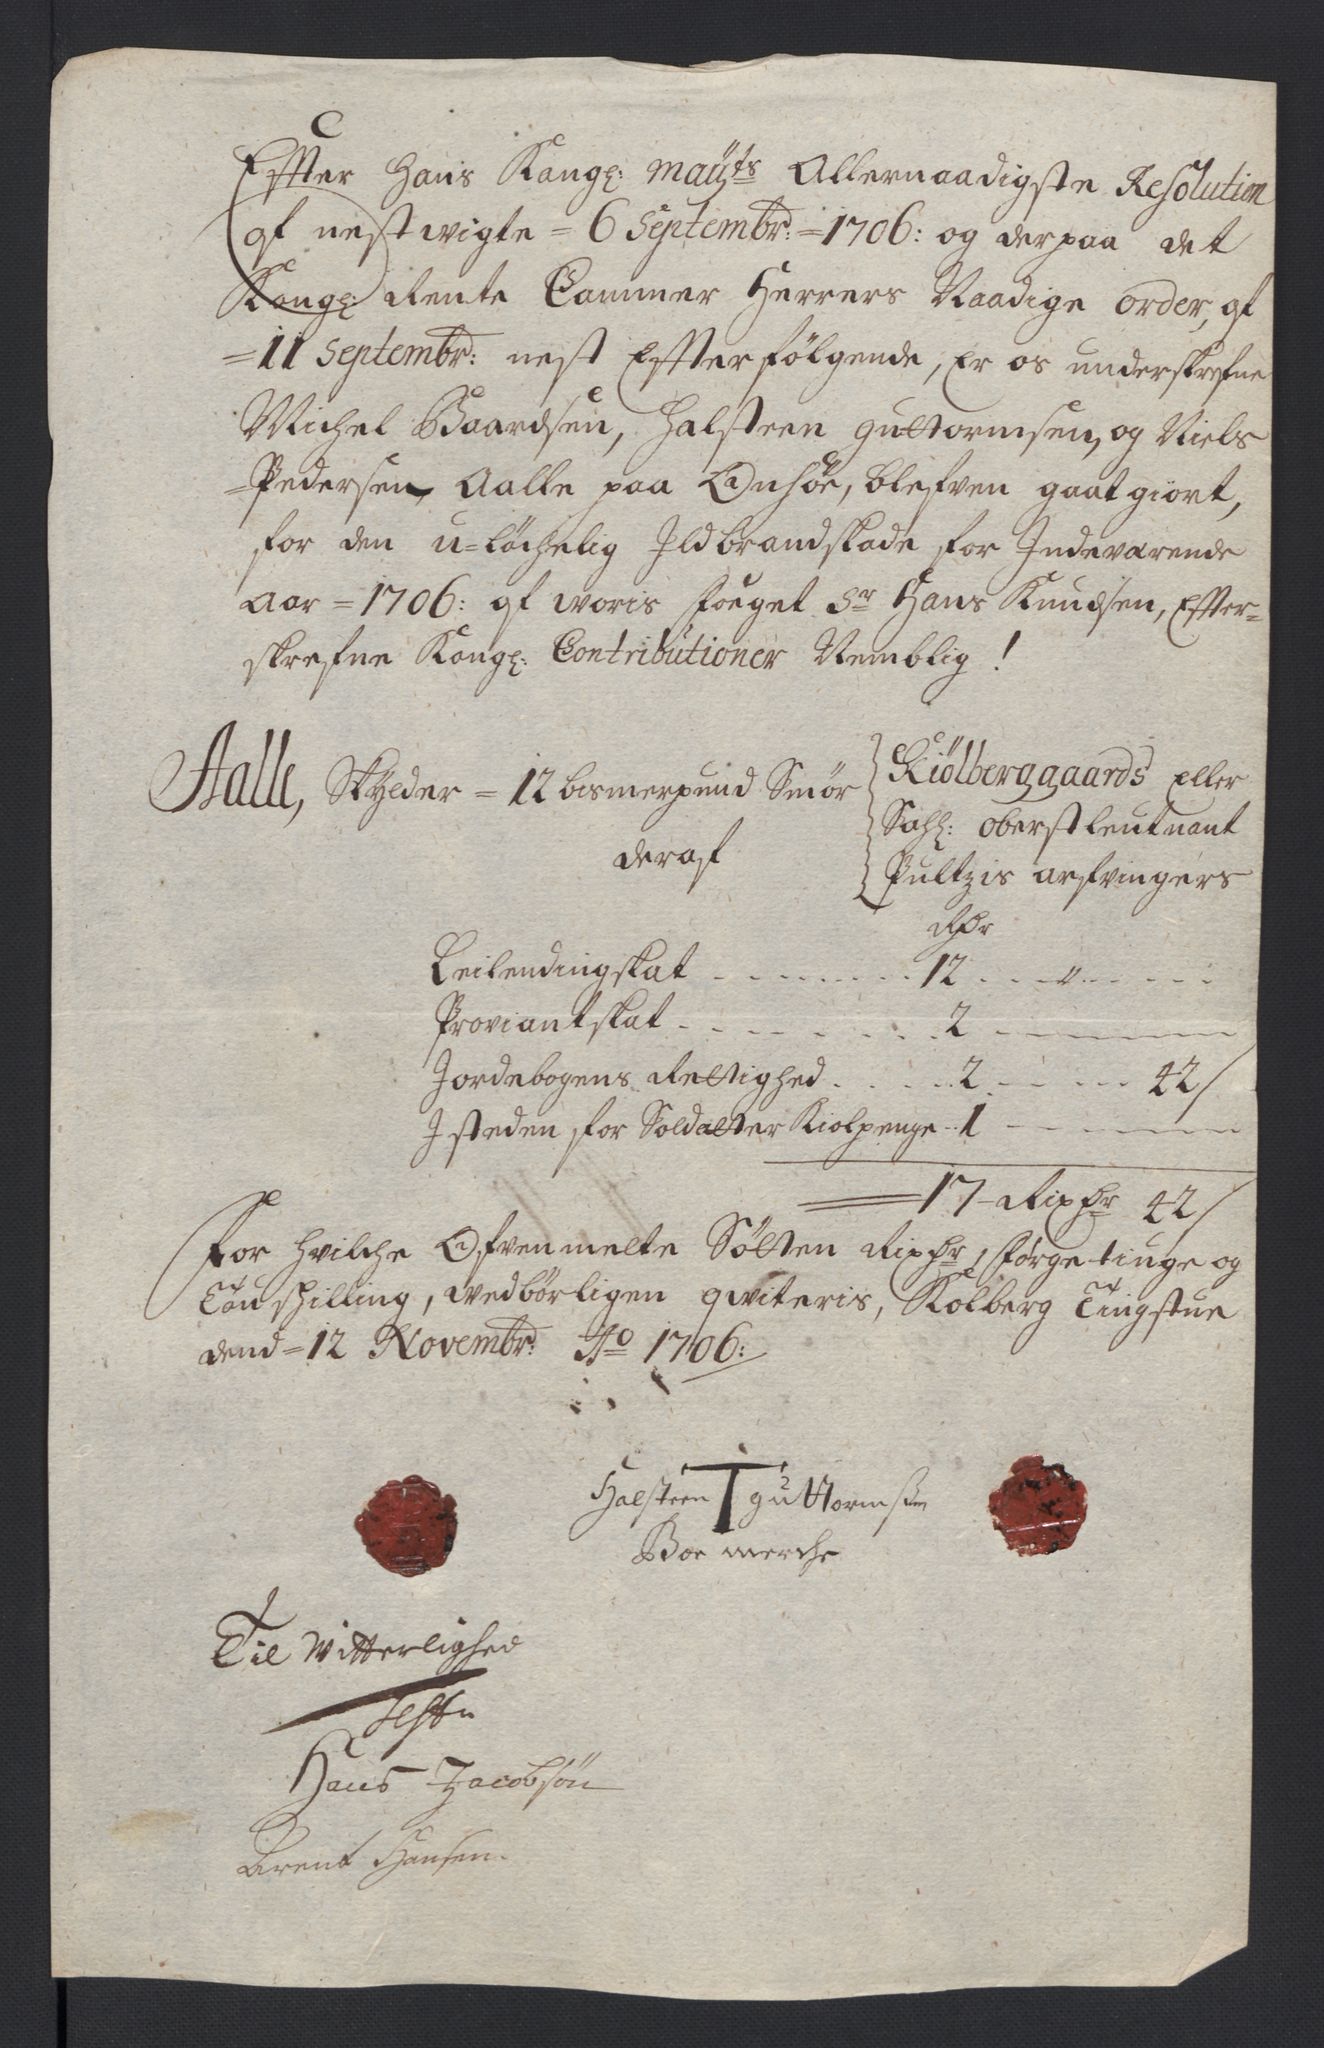 Effter Hans Kongl: Maÿts Allernaadigste Resolution
af nestvigte = 6 Septembr: = 1706: og derpaa det
Kongl: Rente Cammer Herrers Naadige order, af
= 11 Septembr: nest Effterfølgende, Er os underskrefne
Michel Baardsen, Halsteen Guttormsen, og Niels
Pedersen, Aalle paa Onsöe, blefven gaat giort,
for den u=löchelig Ildbrandskade for Indeværende
Aar = 1706: af woris fouget Sr Hans Knudsen, Effter=
skrefne Kongl: Contributioner Nemblig!
Aalle, Skylder = 12 bismerpund Smör
Kiölberggaards eller
Sahl: oberstleutnant
Pultzis arfvingers
deraf
Rdr
Leilendingskat 12 "
Proviantskat 2
Jordebogens Rettighed 2 42/
J steden for Soldatter Kiolpenge 1
17 Rixdr 42/
For hvilche Ofvenmelte Sötten Rixdr,førgetiuge og
Tou skilling, wedbørligen qviteris, Kolberg Tingstue
dend = 12 Novembr: Ao 1706:
Halsteen T Guttormsen
Boe merche
Til Vitterlighed
Hans Jacobsøn
Arent Hansen.